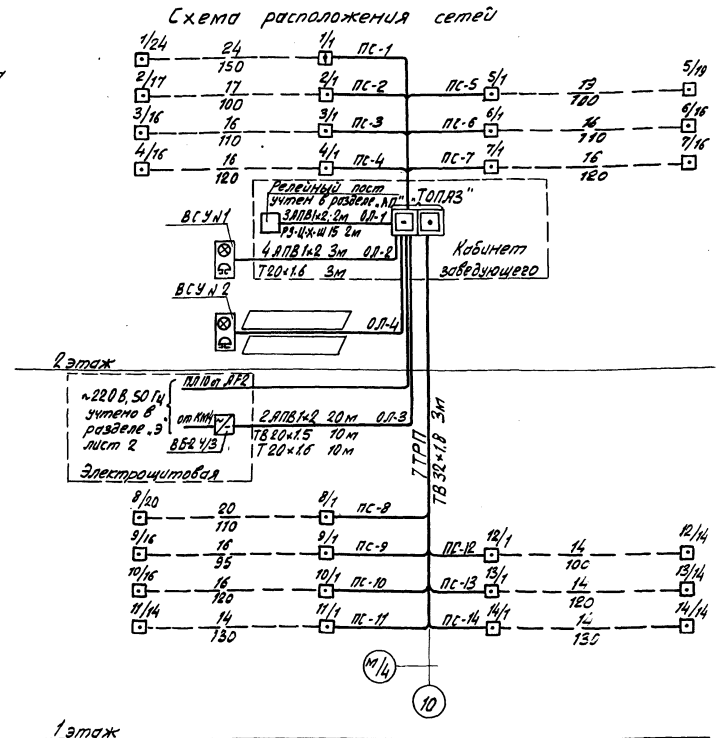 Схема расположения сетей
1/24 24 1/1 ПС-1
150
2/17 17 2/1 ПС-2 ПС-5 5/1 19 5/19
100 100
3/16 16 3/1 ПС-3 ПС-6 6/1 16 6/16
110 110
4/16 16 4/1 ПС-4 ПС-7 7/1 16 7/16
120 120
Релейный пост
учтен в разделе „АП" „ТОПАЗ"
3АПВ1×2·2м ОЛ-1
РЗ-Ц-Х-Ш15 2м
ВСУ №1
4 АПВ1×2 3м ОЛ-2
Т20×1.6 3м
Кабинет
заведующего
ВСУ №2
ОЛ-4
2 этаж
~220 В, 50 Гц
учтено в
разделе „Э"
лист 2
ПЛ10 от ЯГ2
от КМ4
ВБ-24/3
2 АПВ1×2 20м ОЛ-3
ТВ20×1.5 10м
Т20×1.6 10м
Электрощитовая
7ТРП
ТВ32×1.8 3м
8/20 20 8/1 ПС-8
110
9/16 16 9/1 ПС-9 ПС-12 12/1 14 12/14
95 100
10/16 16 10/1 ПС-10 ПС-13 13/1 14 13/14
120 120
11/14 14 11/1 ПС-11 ПС-14 14/1 14 14/14
130 130
М/4
10
1 этаж